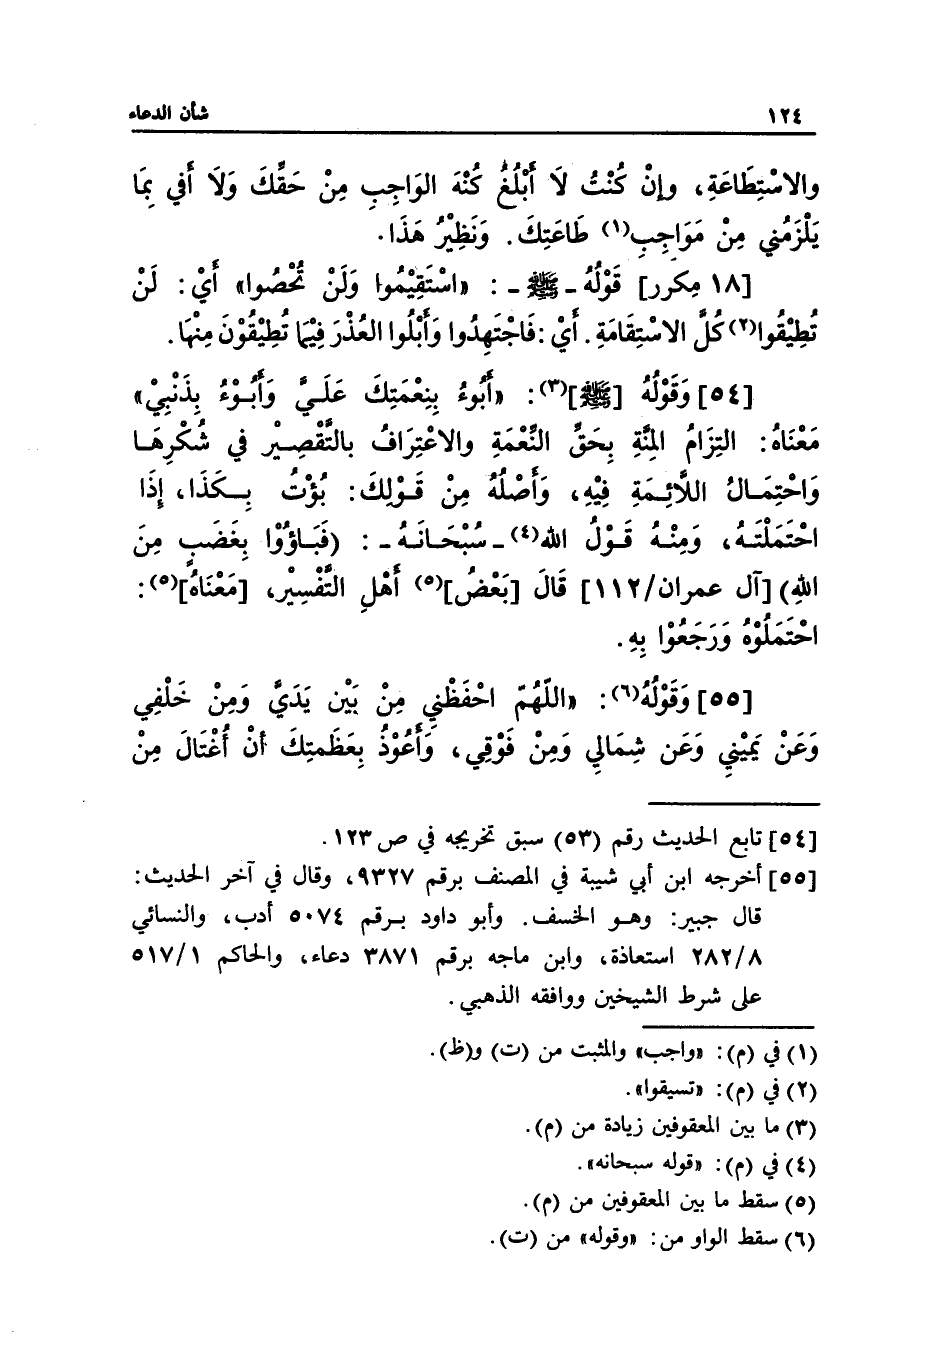 ١٢٤ شأن الدعاء
والاسْتِطَاعَةِ، وإنْ كُنْتُ لَا أَبْلُغُ كُنْهَ الوَاجِبِ مِنْ حَقِّكَ وَلَا أَفي بِمَا
يَلْزَمُني مِنْ مَوَاجِبِ(١) طَاعَتِكَ. وَنَظِيْرُ هَذَا.
[١٨ مكرر] قَوْلُهُ ـ ﷺ ـ : «اسْتَقِيْمُوا وَلَنْ تُحْصُوا» أَيْ: لَنْ
تُطِيْقُوا(٢) كُلَّ الاسْتِقَامَةِ. أَيْ: فَاجْتَهِدُوا وَأَبْلُوا العُذْرَ فِيْمَا تُطِيْقُوْنَ مِنْهَا.
[٥٤] وَقَوْلُهُ [ﷺ](٣): «أَبُوءُ بِنِعْمَتِكَ عَلَيَّ وَأَبُوْءُ بِذَنْبِيْ»
مَعْنَاهُ: التِزَامُ المِنَّةِ بِحَقِّ النِّعْمَةِ والاعْتِرَافُ بالتَّقْصِيْرِ في شُكْرِهَا
وَاحْتِمَالُ اللَّائِمَةِ فِيْهِ، وَأَصْلُهُ مِنْ قَوْلِكَ: بُؤْتُ بِكَذَا، إِذَا
احْتَمَلْتَهُ، وَمِنْهُ قَوْلُ الله(٤) ـ سُبْحَانَهُ ـ : (فَبَاؤُوْا بِغَضَبٍ مِنَ
اللهِ) [آل عمران/١١٢] قَالَ [بَعْضُ](٥) أَهْلِ التَّفْسِيْرِ، [مَعْنَاهُ](٥):
احْتَمَلُوْهُ وَرَجَعُوْا بِهِ.
[٥٥] وَقَوْلُهُ(٦): «اللَّهُمّ احْفَظْنِي مِنْ بَيْنِ يَدَيَّ وَمِنْ خَلْفِي
وَعَنْ يَمِيْنِي وَعَن شِمَالِي وَمِنْ فَوْقِي، وَأَعُوْذُ بِعَظَمتِكَ أنْ أُغْتَالَ مِنْ
[٥٤] تابع الحديث رقم (٥٣) سبق تخريجه في ص ١٢٣.
[٥٥] أخرجه ابن أبي شيبة في المصنف برقم ٩٣٢٧، وقال في آخر الحديث:
قال جبير: وهو الخسف. وأبو داود برقم ٥٠٧٤ أدب، والنسائي
٢٨٢/٨ استعاذة، وابن ماجه برقم ٣٨٧١ دعاء، والحاكم ٥١٧/١
على شرط الشيخين ووافقه الذهبي.
(١) في (م): «واجب» والمثبت من (ت) و(ظ).
(٢) في (م): «تسيقوا».
(٣) ما بين المعقوفين زيادة من (م).
(٤) في (م): «قوله سبحانه».
(٥) سقط ما بين المعقوفين من (م).
(٦) سقط الواو من: «وقوله» من (ت).